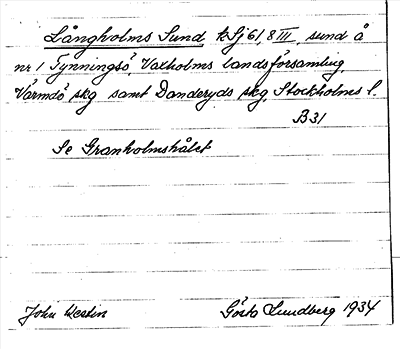 Långholms Sund, tSj 61, 8 III, sund å
nr 1 Tynningsö, Vaxholms landsförsamling,
Värmdö skg samt Danderyds skg, Stockholms l.
B31
Se Granholmshålet
John Westin Gösta Lundberg 1934